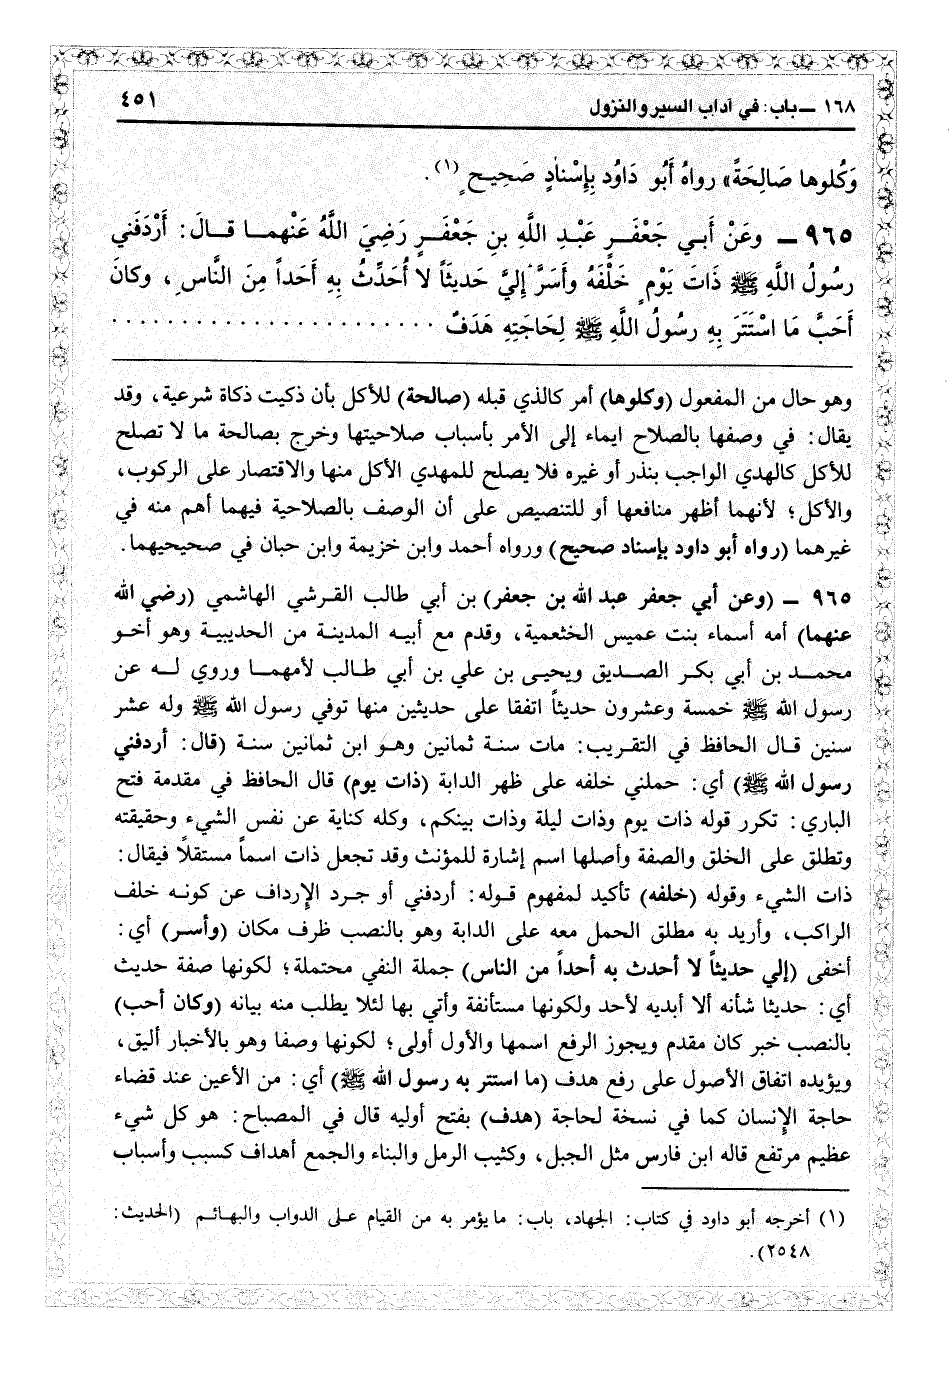 ١٦٨ ـ باب: في آداب السير والنزول
٤٥١
وَكُلوها صَالِحَةً» رواهُ أَبُو دَاوُد بِإِسْنادٍ صَحِيحٍ(١).
٩٦٥ ـ وعَنْ أَبي جَعْفَرٍ عَبْدِ اللَّهِ بنِ جَعْفَرٍ رَضِيَ اللَّهُ عَنْهما قالَ: أَرْدَفَني
رسُولُ اللَّهِ ﷺ ذَاتَ يَوْمٍ خَلْفَهُ وأَسَرَّ إليَّ حَديثاً لا أُحَدِّثُ بِهِ أَحَداً مِنَ النَّاسِ، وكانَ
أَحَبَّ مَا اسْتَتَرَ بِهِ رسُولُ اللَّهِ ﷺ لِحَاجَتِهِ هَدَفٌ . . . . . . . . . . . . . . . . . . . . . . .
وهو حال من المفعول (وكلوها) أمر كالذي قبله (صالحة) للأكل بأن ذكيت ذكاة شرعية، وقد
يقال: في وصفها بالصلاح ايماء إلى الأمر بأسباب صلاحيتها وخرج بصالحة ما لا تصلح
للأكل كالهدي الواجب بنذر أو غيره فلا يصلح للمهدي الأكل منها والاقتصار على الركوب،
والأكل؛ لأنهما أظهر منافعها أو للتنصيص على أن الوصف بالصلاحية فيهما أهم منه في
غيرهما (رواه أبو داود بإسناد صحيح) ورواه أحمد وابن خزيمة وابن حبان في صحيحيهما.
٩٦٥ ـ (وعن أبي جعفر عبد الله بن جعفر) بن أبي طالب القرشي الهاشمي (رضي الله
عنهما) أمه أسماء بنت عميس الخثعمية، وقدم مع أبيه المدينة من الحديبية وهو أخو
محمد بن أبي بكر الصديق ويحيى بن علي بن أبي طالب لأمهما وروي له عن
رسول الله ﷺ خمسة وعشرون حديثاً اتفقا على حديثين منها توفي رسول الله ﷺ وله عشر
سنين قال الحافظ في التقريب: مات سنة ثمانين وهو ابن ثمانين سنة (قال: أردفني
رسول الله ﷺ) أي: حملني خلفه على ظهر الدابة (ذات يوم) قال الحافظ في مقدمة فتح
الباري: تكرر قوله ذات يوم وذات ليلة وذات بينكم، وكله كناية عن نفس الشيء وحقيقته
وتطلق على الخلق والصفة وأصلها اسم إشارة للمؤنث وقد تجعل ذات اسماً مستقلاً فيقال:
ذات الشيء وقوله (خلفه) تأكيد لمفهوم قوله: أردفني أو جرد الإرداف عن كونه خلف
الراكب، وأريد به مطلق الحمل معه على الدابة وهو بالنصب ظرف مكان (وأسر) أي:
أخفى (إلي حديثاً لا أحدث به أحداً من الناس) جملة النفي محتملة؛ لكونها صفة حديث
أي: حديثا شأنه ألا أبديه لأحد ولكونها مستأنفة وأتي بها لئلا يطلب منه بيانه (وكان أحب)
بالنصب خبر كان مقدم ويجوز الرفع اسمها والأول أولى؛ لكونها وصفا وهو بالأخبار أليق،
ويؤيده اتفاق الأصول على رفع هدف (ما استتر به رسول الله ﷺ) أي: من الأعين عند قضاء
حاجة الإنسان كما في نسخة لحاجة (هدف) بفتح أوليه قال في المصباح: هو كل شيء
عظيم مرتفع قاله ابن فارس مثل الجبل، وكثيب الرمل والبناء والجمع أهداف كسبب وأسباب
(١) أخرجه أبو داود في كتاب: الجهاد، باب: ما يؤمر به من القيام على الدواب والبهائم (الحديث:
٢٥٤٨).